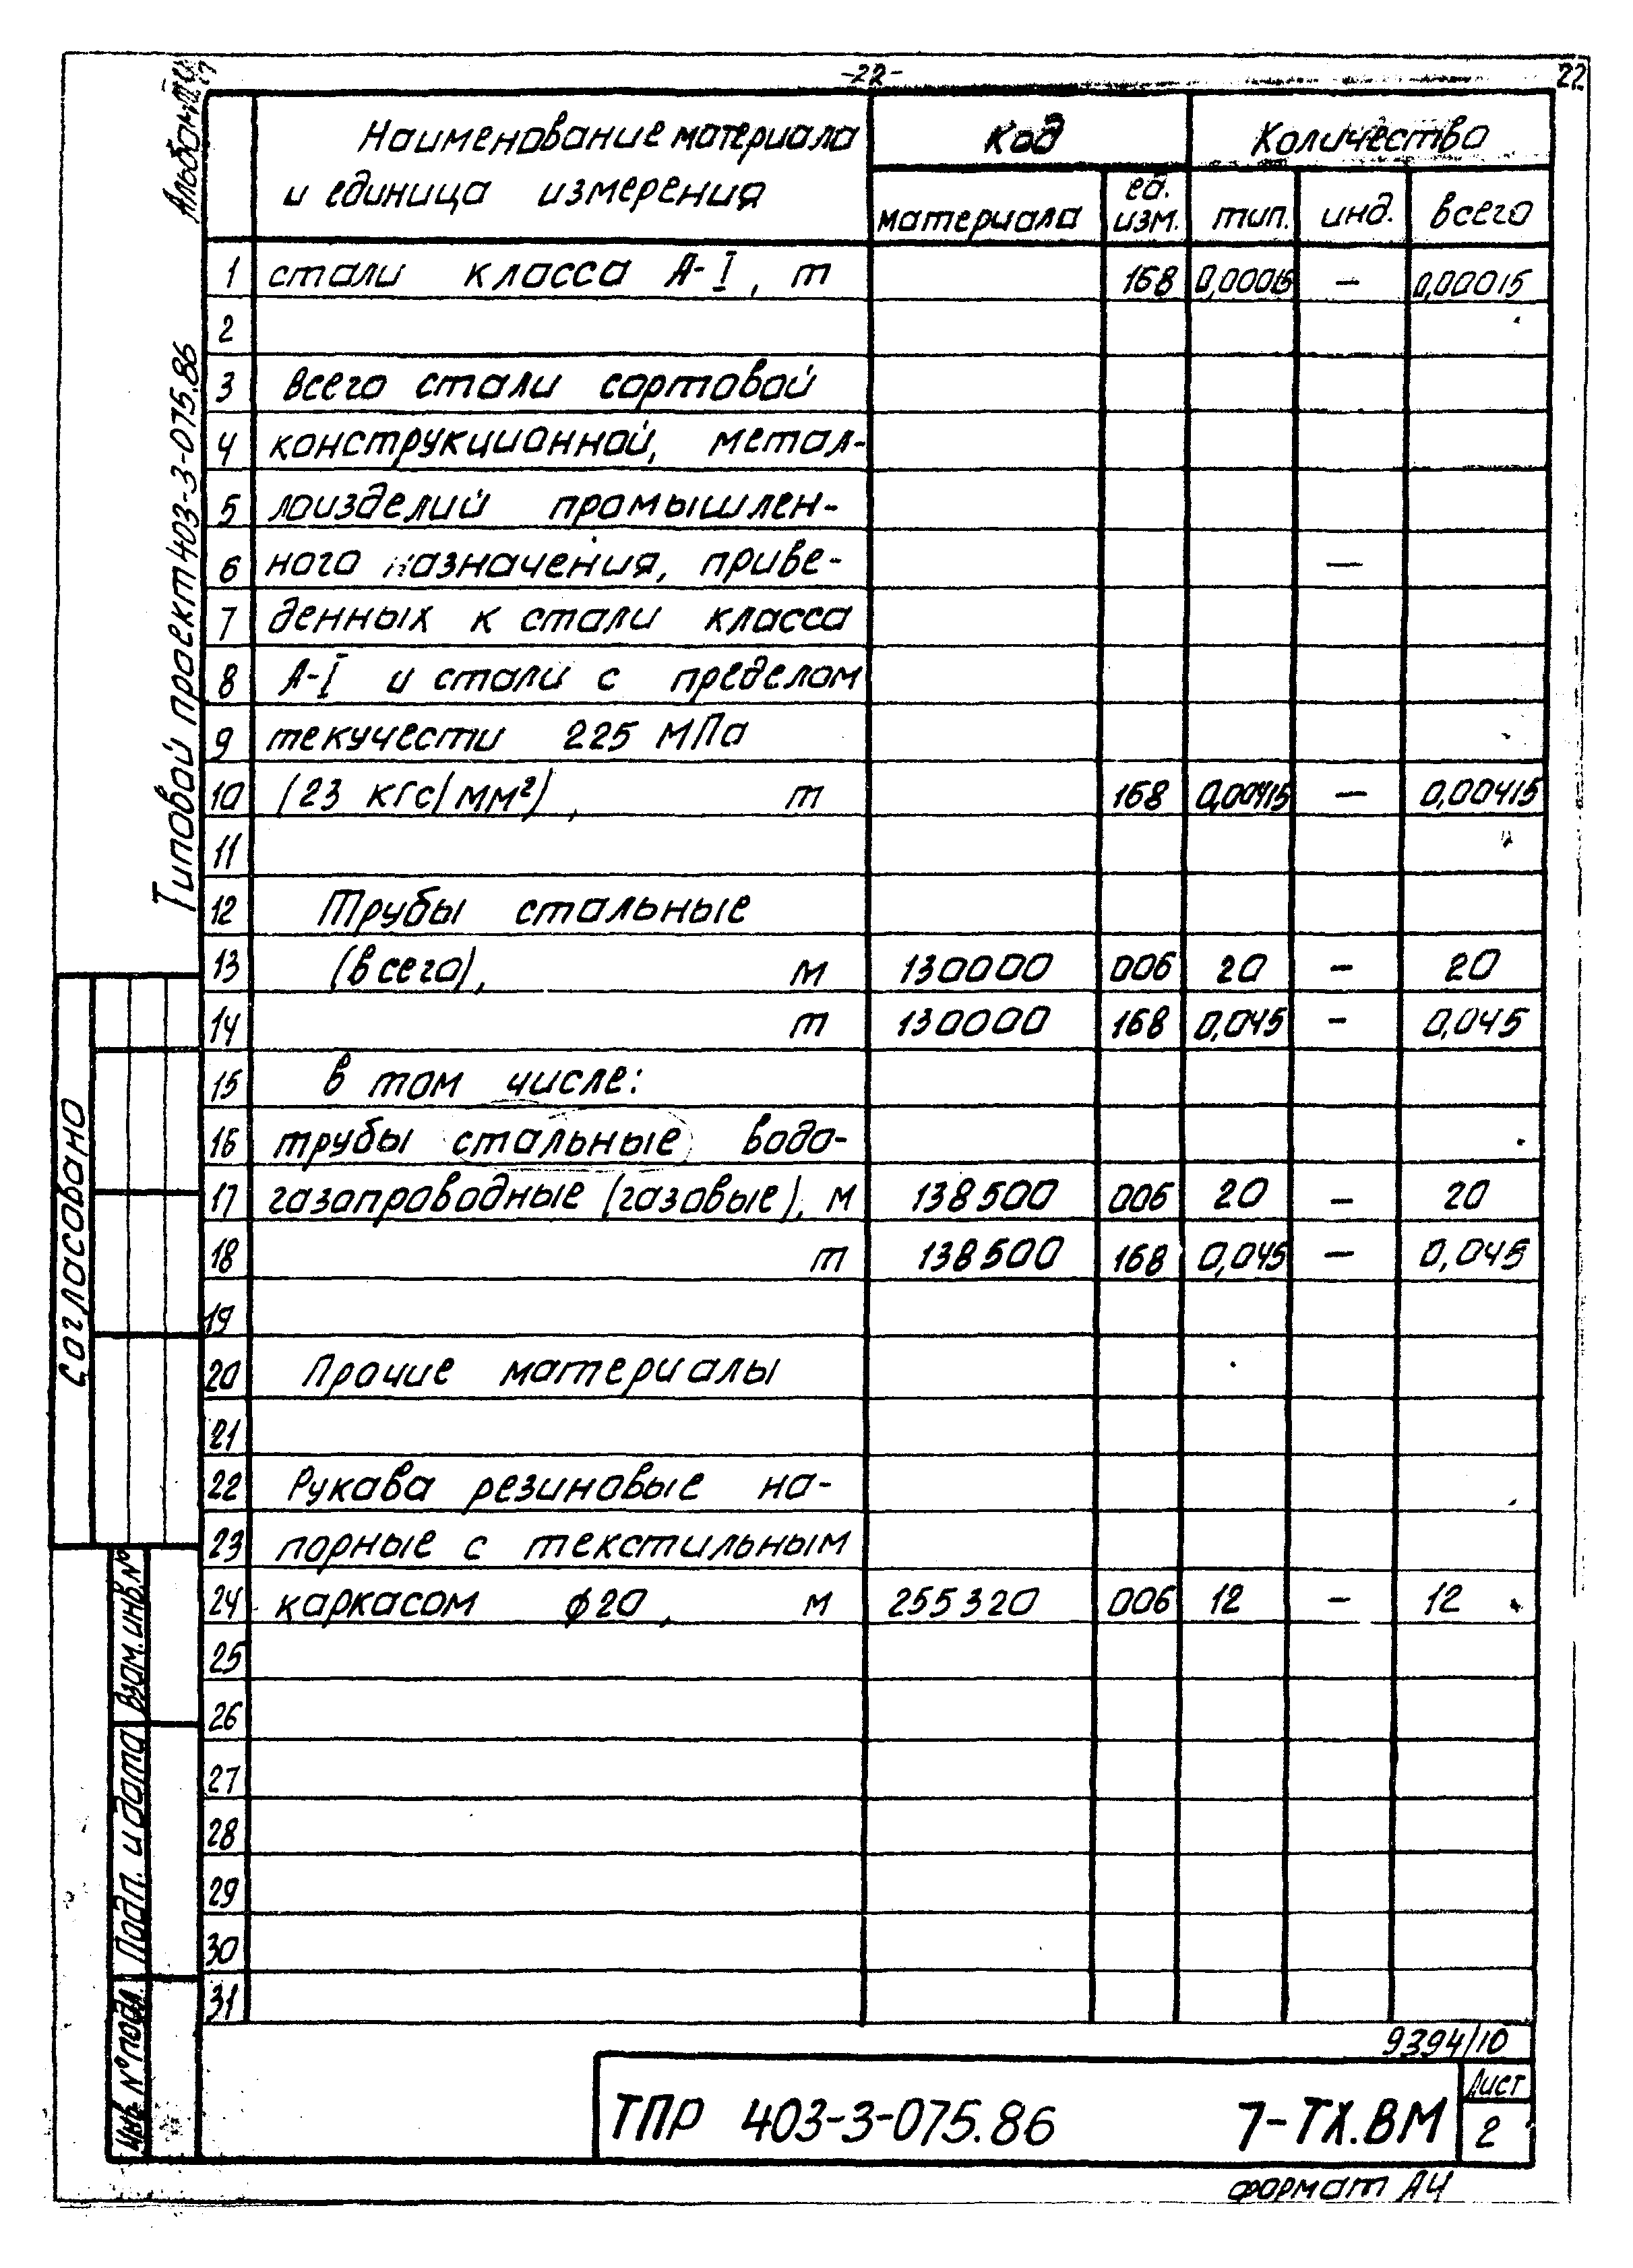 -22-
22
Наименование материала
и единица измерения
Код
Количество
материала
ед. изм.
тип.
инд.
всего
1 стали класса А-I, т 168 0,00015 — 0,00015
2
3 Всего стали сортовой
4 конструкционной, метал-
5 лоизделий промышлен-
6 ного назначения, приве- —
7 денных к стали класса
8 А-I и стали с пределом
9 текучести 225 МПа
10 (23 кгс/мм²), т 168 0,00415 — 0,00415
11
12 Трубы стальные
13 (всего), м 130000 006 20 — 20
14 т 130000 168 0,045 — 0,045
15 в том числе:
16 трубы стальные водо-
17 газопроводные (газовые), м 138500 006 20 — 20
18 т 138500 168 0,045 — 0,045
19
20 Прочие материалы
21
22 Рукава резиновые на-
23 порные с текстильным
24 каркасом ф20, м 255320 006 12 — 12
25
26
27
28
29
30
31
9394/10
ТПР 403-3-075.86 7-ТХ.ВМ
Лист
2
формат А4
Альбом
Типовой проект 403-3-075.86
Согласовано
Взам.инв.№
Подп. и дата
Инв. №подл.